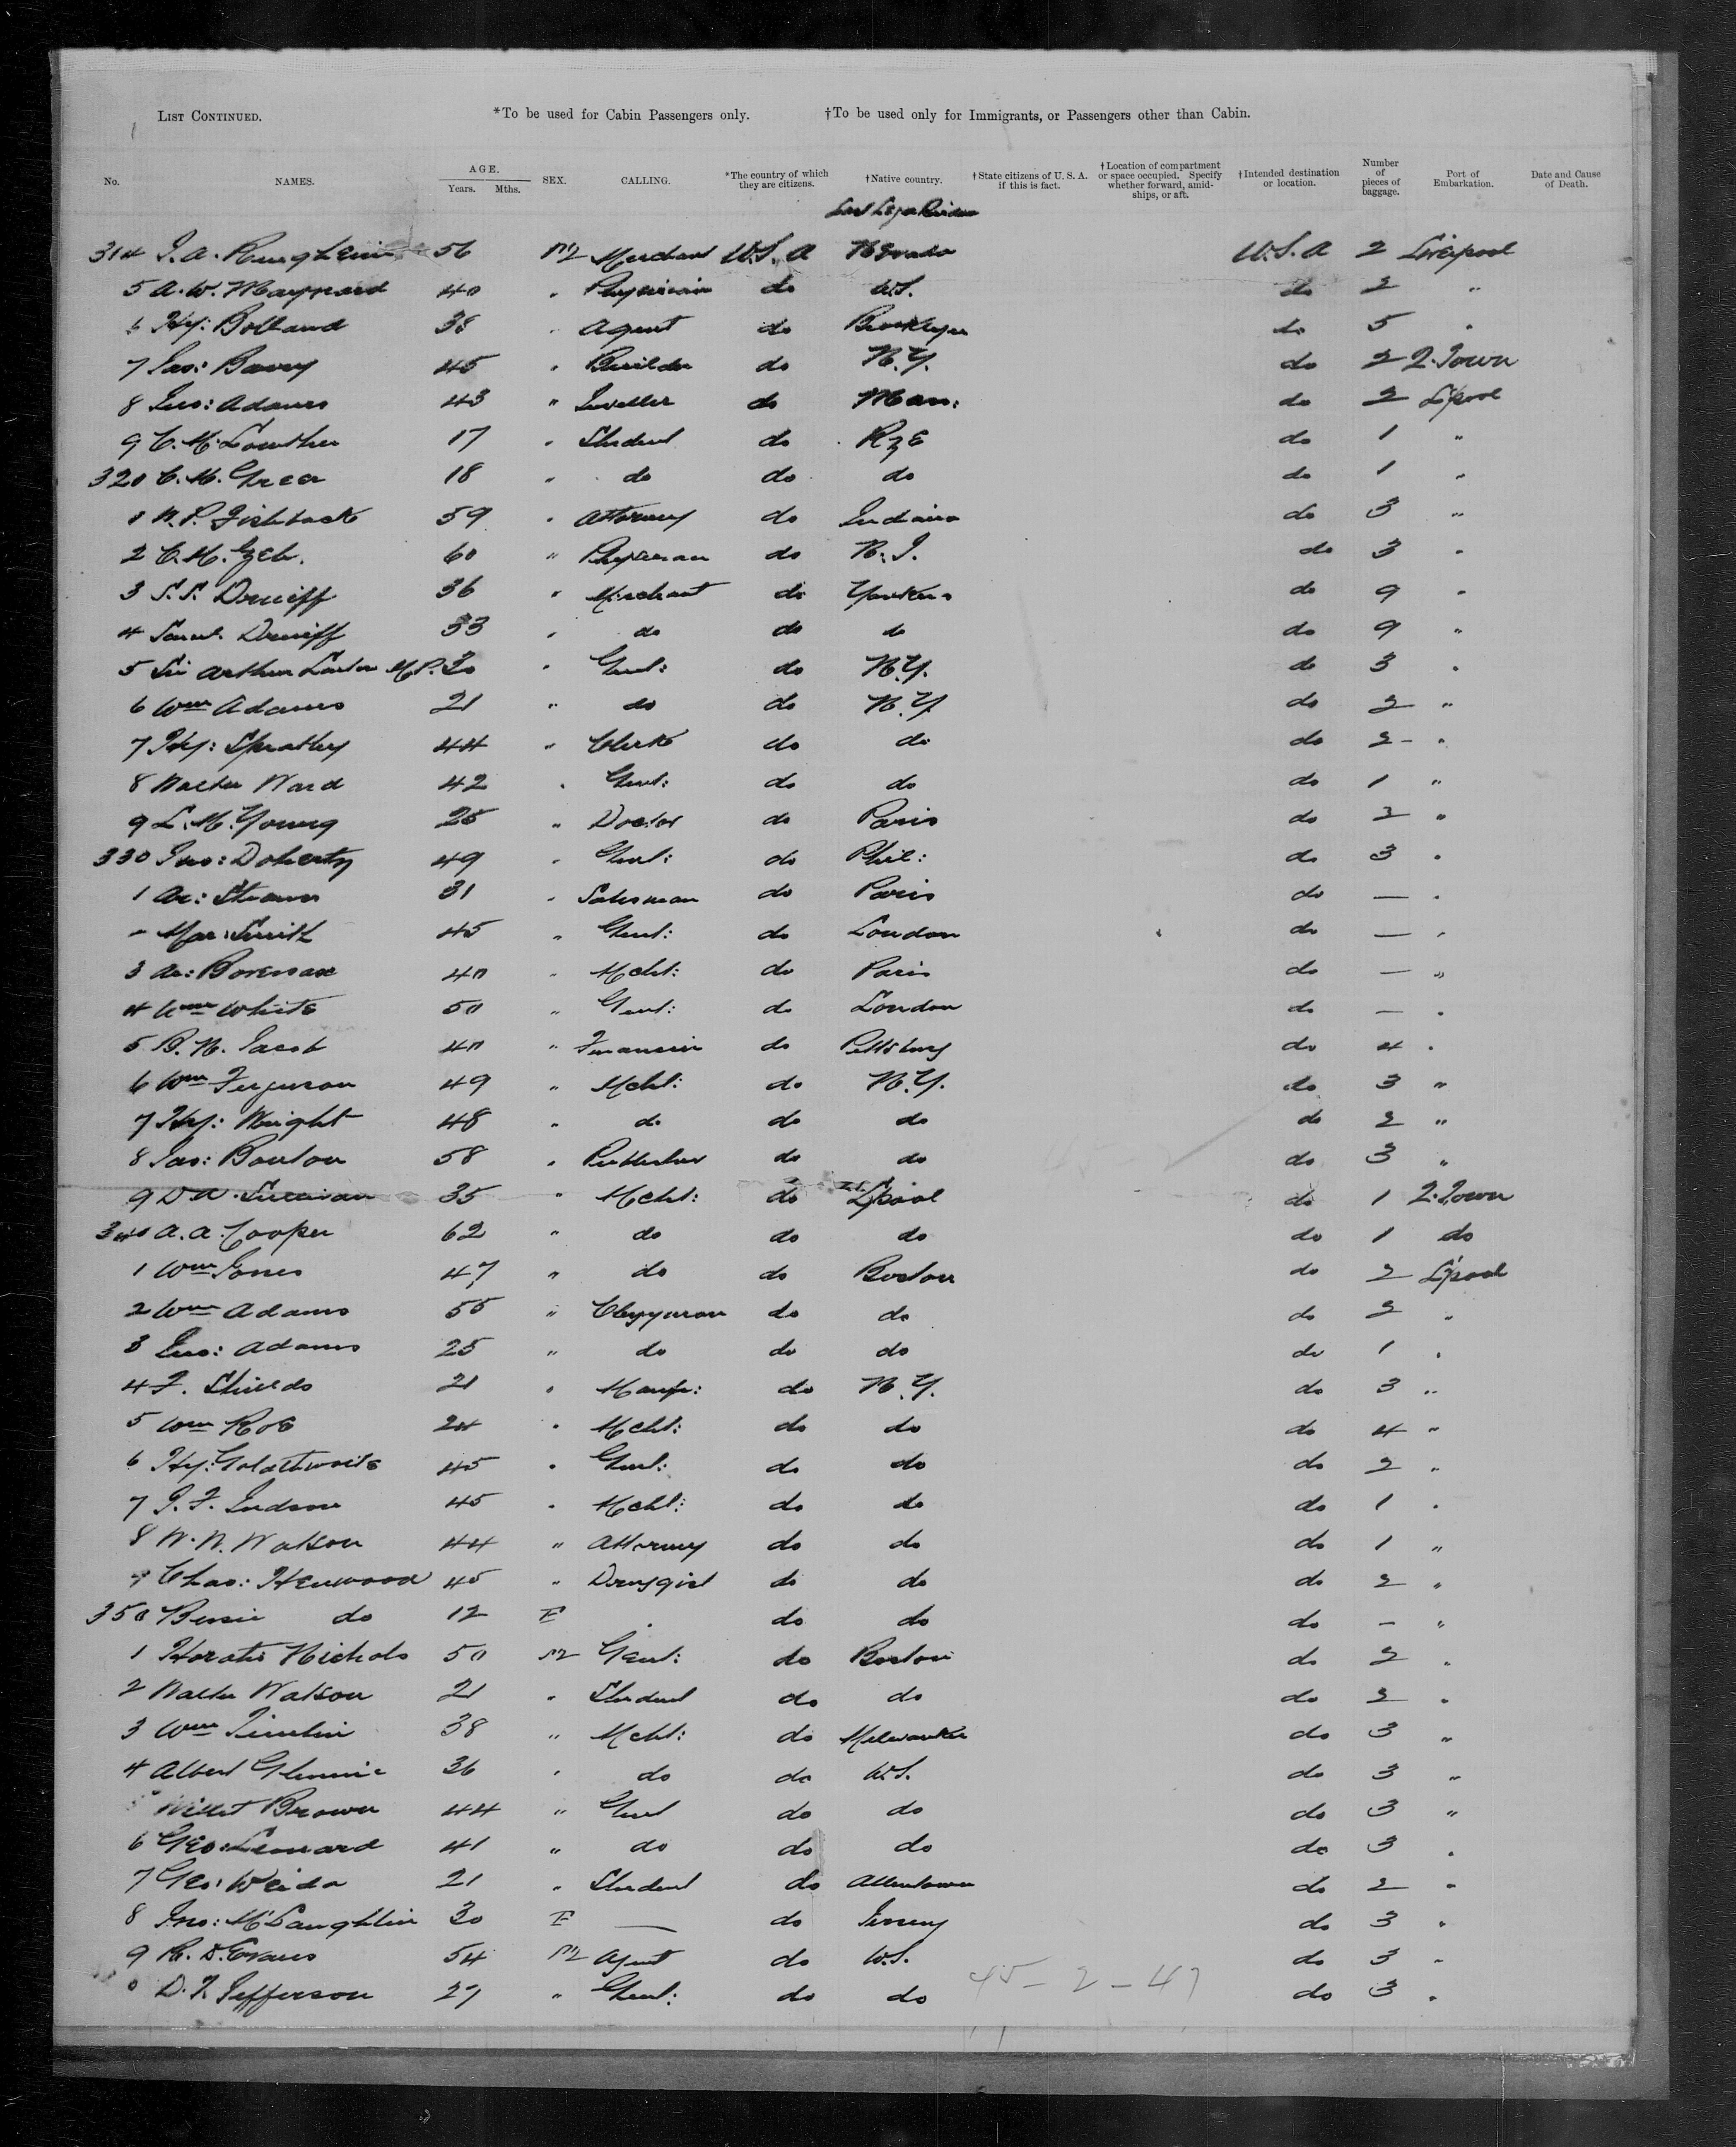 LIST CONTINUED. *To be used for Cabin Passengers only. †To be used only for Immigrants, or Passengers other than Cabin.
No. NAMES. AGE. Years. Mths. SEX. CALLING. *The country of which they are citizens. †Native country. †State citizens of U. S. A. if this is fact. †Location of compartment or space occupied. Specify whether forward, amid-ships, or aft. †Intended destination or location. Number of pieces of baggage. Port of Embarkation. Date and Cause of Death.
314 56 M Merchant U.S.A Nevada U.S.A 2 Liverpool
5 A. W. Maynard 40 " Physician do U.S. do 2 "
6 Hy: Bolland 38 " Agent do Brooklyn do 5 "
7 Jas: Barry 45 " Builder do N.Y. do 2 Q. Town
8 Jno: Adams 43 " Jeweller do Mass: do 2 L'pool
9 C. M. Lowther 17 " Student do do 1 "
320 C. M. Greer 18 " do do do do 1 "
1 W. P. Fishback 59 " Attorney do Indiana do 3 "
2 C. H. 60 " Physician do N. J. do 3 "
3 S. S. Druiff 36 " Merchant do Yonkers do 9 "
4 Saml. Druiff 33 " do do do do 9 "
5 Sir Arthur M.P. 30 " Gent: do N.Y. do 3 "
6 Wm Adams 21 " do do N.Y. do 2 "
7 Hy: Spratley 44 " Clerk do do do 2 "
8 Walter Ward 42 " Gent: do do do 1 "
9 L. M. Young 25 " Doctor do Paris do 2 "
330 Jno: Doherty 49 " Gent: do Phil: do 3 "
1 Ar: Strauss 31 " Salesman do Paris do — "
" Mar: Smith 45 " Gent: do London do — "
3 Ar: 40 " Mcht: do Paris do — "
4 Wm White 50 " Gent: do London do — "
5 B. N. Jacob 40 " Financier do Pittsburg do 4 "
6 Wm Ferguson 49 " Mcht: do N.Y. do 3 "
7 Hy: Wright 48 " do do do do 2 "
8 Jas: Boulton 58 " Publisher do do do 3 "
9 D. A. Sullivan 35 " Mcht: do L'pool do 1 Q. Town
340 A. A. Cooper 62 " do do do do 1 do
1 Wm Jones 47 " do do Boston do 2 L'pool
2 Wm Adams 55 " Clergyman do do do 2 "
3 Jno: Adams 25 " do do do do 1 "
4 F. Shields 21 " Manfr: do N.Y. do 3 "
5 Wm Roe 24 " Mcht: do do do 4 "
6 Hy: Goldthwaite 45 " Gent: do do do 2 "
7 J. F. Judson 45 " Mcht: do do do 1 "
8 W. W. Watson 44 " Attorney do do do 1 "
9 Chas: Henwood 45 " Druggist do do do 2 "
350 Bessie do 12 F do do do — "
1 Horatio Nichols 50 M Gent: do Boston do 2 "
2 Walter Watson 21 " Student do do do 2 "
3 Wm Timlin 38 " Mcht: do Milwaukee do 3 "
4 Albert Glennie 36 " do do U.S. do 3 "
5 Willet Brown 44 " Gent do do do 3 "
6 Geo: Leonard 41 " do do do do 3 "
7 Geo: Weida 21 " Student do Allentown do 2 "
8 Jno: McLaughlin 30 F — do Jersey do 3 "
9 R. D. Evans 54 M Agent do U.S. do 3 "
0 D. T. Jefferson 27 " Gent: do do do 3 "
45 - 2 - 47